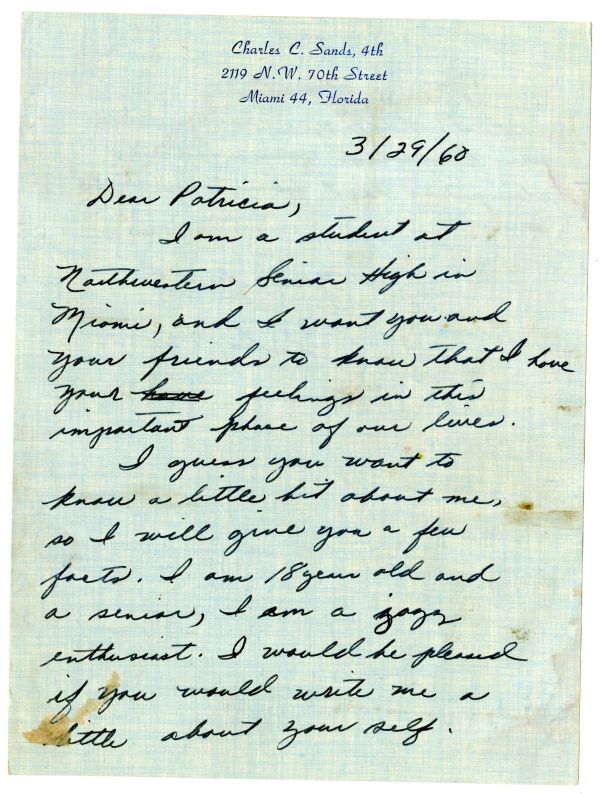 Charles C. Sands, 4th
2119 N.W. 70th Street
Miami 44, Florida
3/29/60
Dear Patricia,
I am a student at
Northwestern Senior High in
Miami, and I want you and
your friends to know that I have
your have feelings in this
important phase of our lives.
I guess you want to
know a little bit about me,
so I will give you a few
facts. I am 18 year old and
a senior, I am a jazz
enthusiast. I would be pleased
if you would write me a
little about your self.